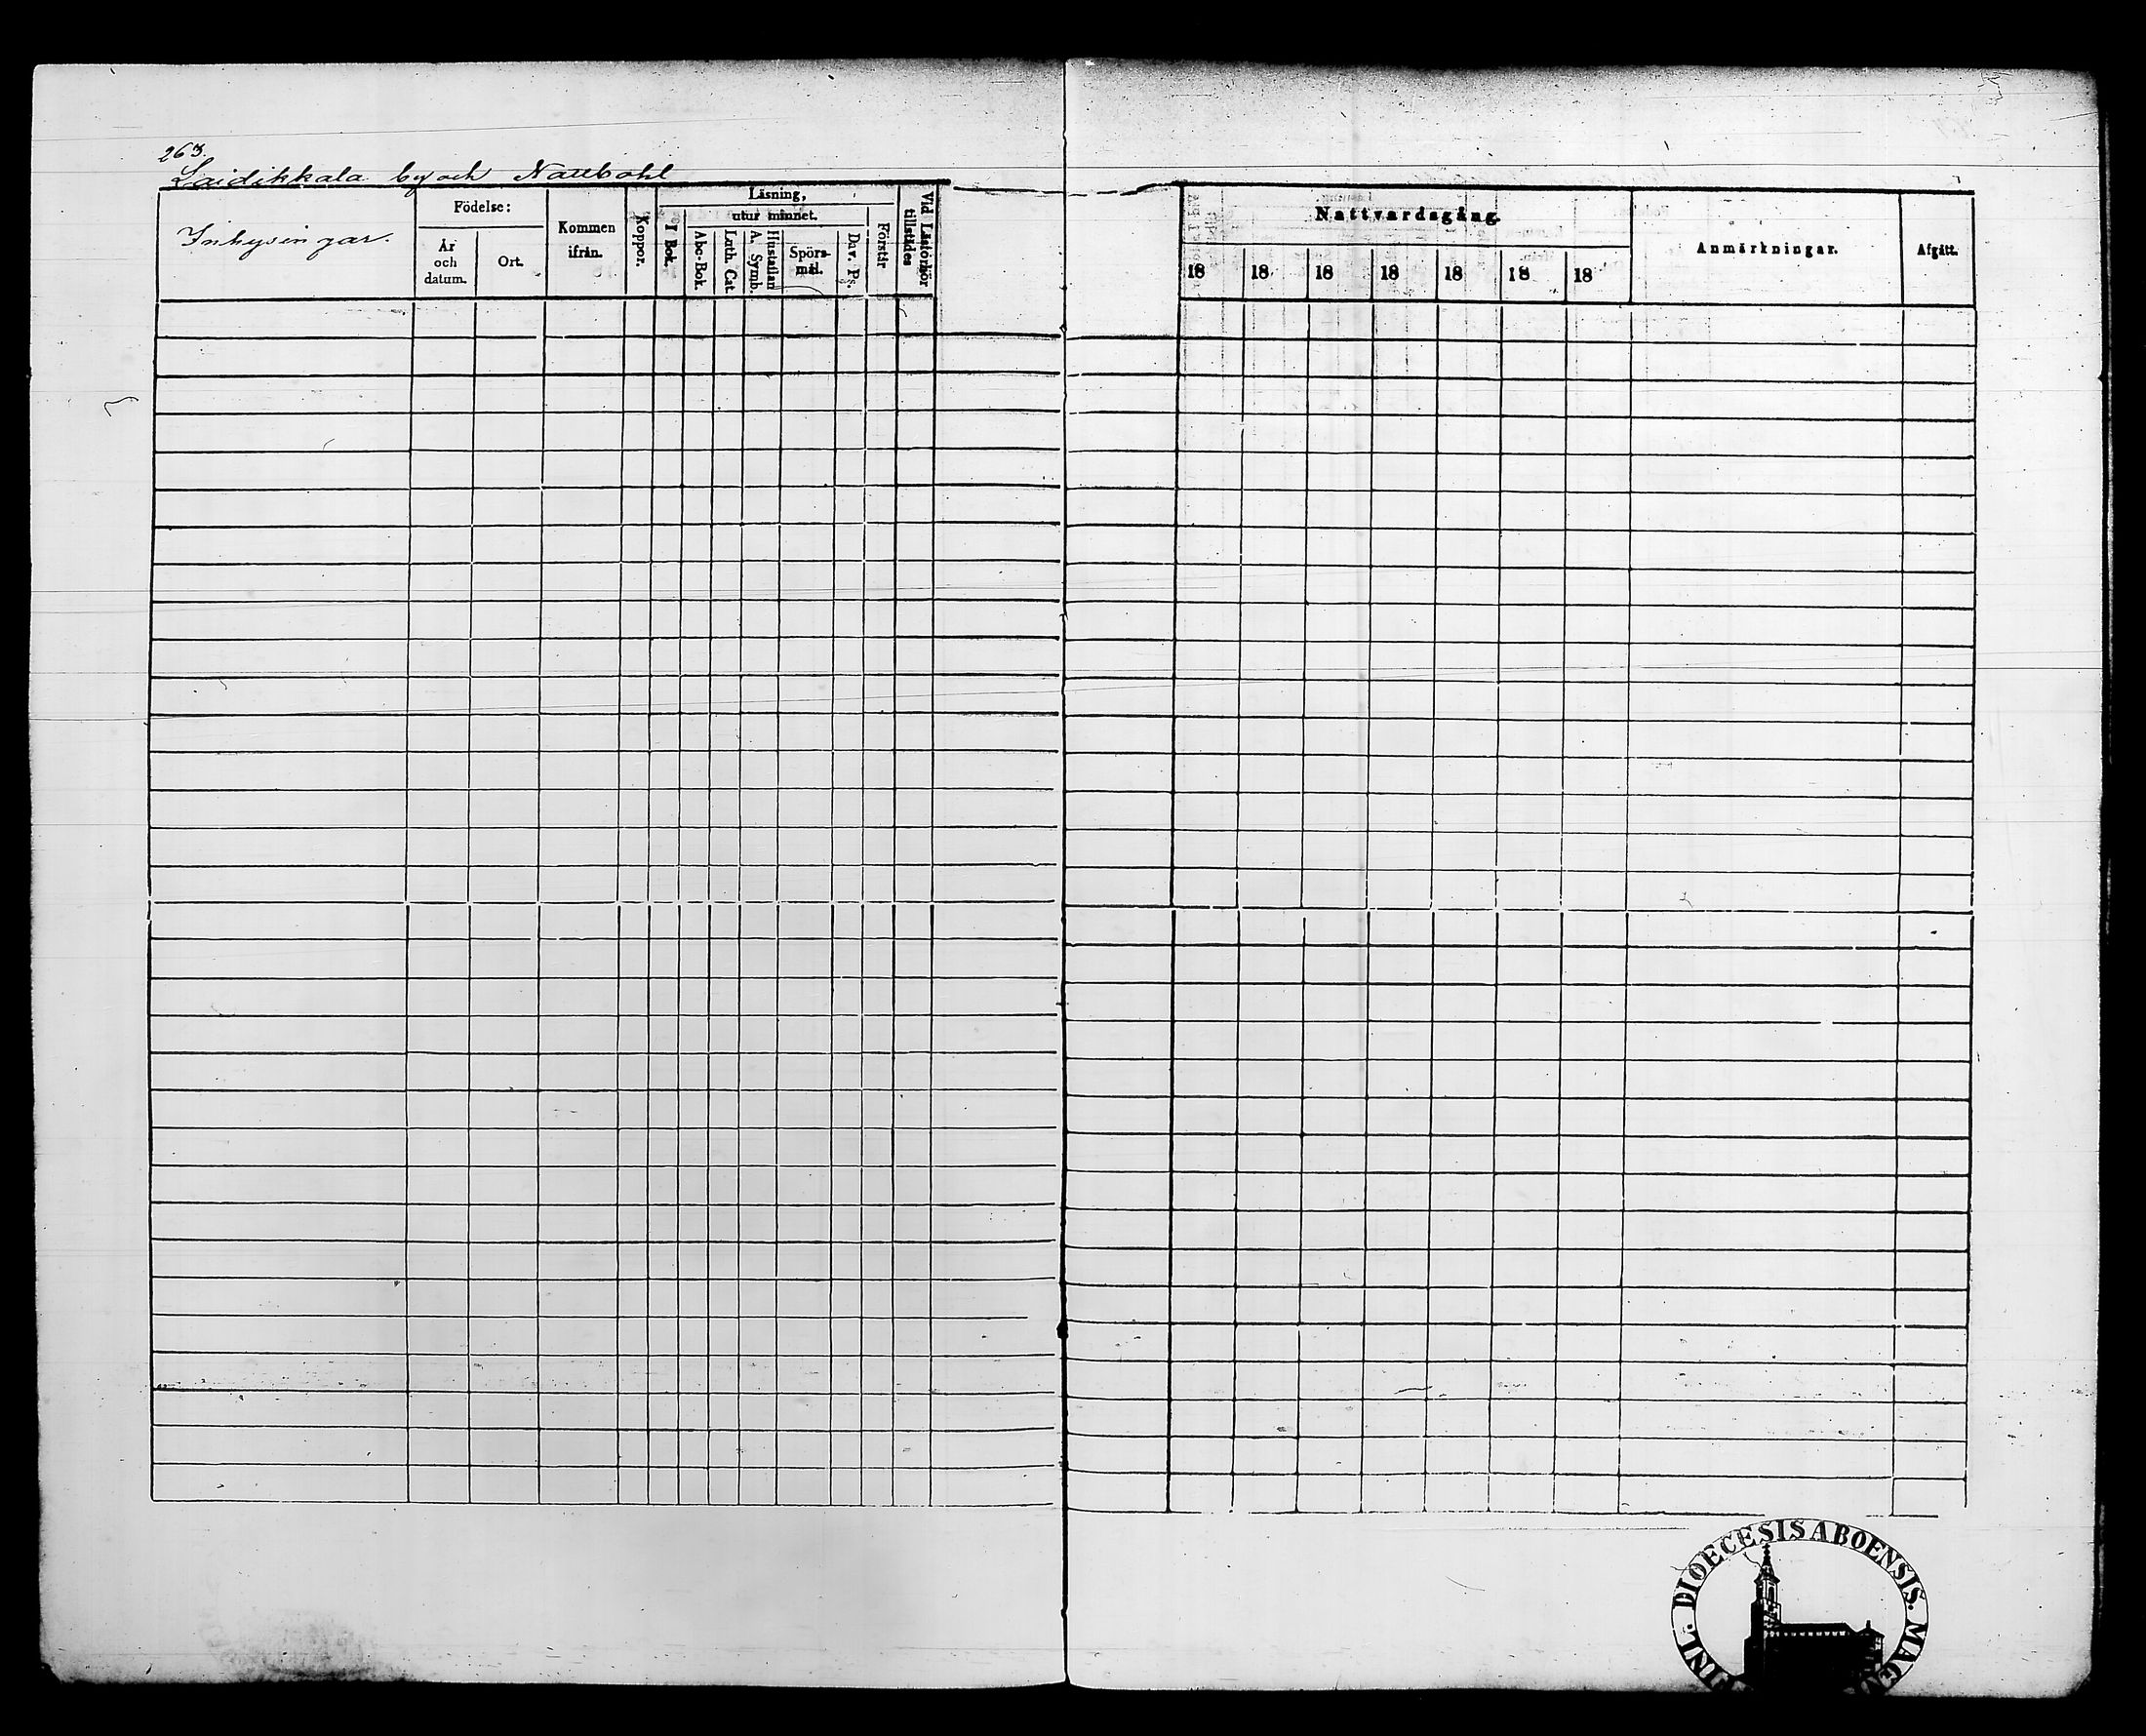 263.
Laidikkala by och Nattbohl
Inhysingar.
Födelse:
År
och
datum.
Ort.
Kommen
ifrån.
Koppor.
Läsning,
utur minnet.
I Bok.
Abc-Bok.
Luth. Cat.
A. Symb.
Hustaflan
Spörs-
mål.
Dav. Ps.
Förstår
Vid Läsförhör
tillstädes
Nattvardsgång.
18 18 18 18 18 18 18
Anmärkningar.
Afgått.
FINL. DIOECESIS ABOENSIS. MAG